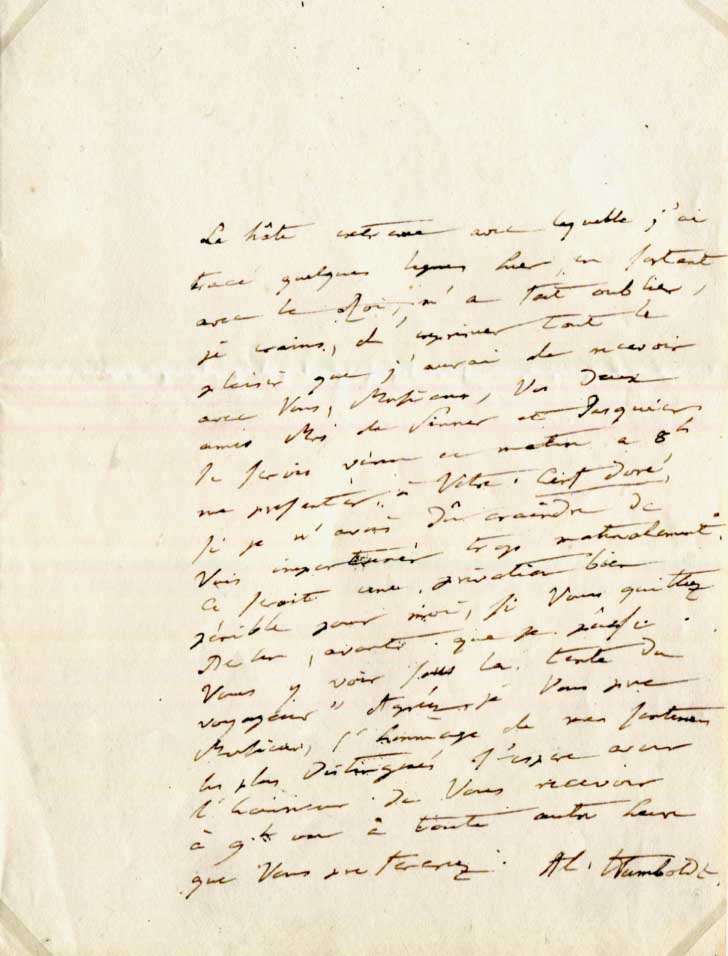 La hâte extreme avec laquelle j'ai
tracé quelques lignes hier, en sortant
avec le Roi, m'a fait oublier,
je crains, d'exprimer tout le
plaisir que j'aurai de recevoir
avec Vous, Monsieur, Vos deux
amis Mrs de et Pasquier
Je serois venu ce matin a 8h
me présenter à Votre Cerf doré,
si je n'avois dû craindre de
Vous importuner trop matinalement.
Ce seroit une privation bien
pénible pour moi, si Vous quittiez
Berlin, avant que je puisse
Vous y voir sous la tente du
voyageur" Agréez, je Vous prie
Monsieur, l'hommage de mes sentimens
les plus distingués J'espere avoir
l'honneur de Vous recevoir
à 9h ou à toute autre heure
que Vous prefererez. Al. Humboldt.